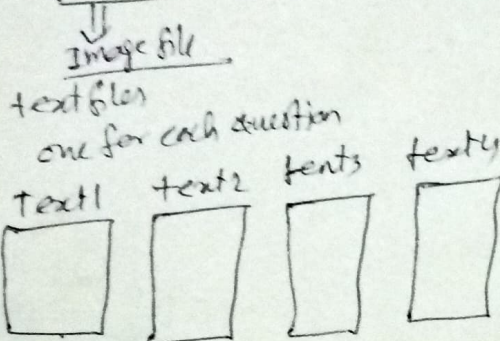 Image file
text files
one for each question
text1 text2 text3 text4